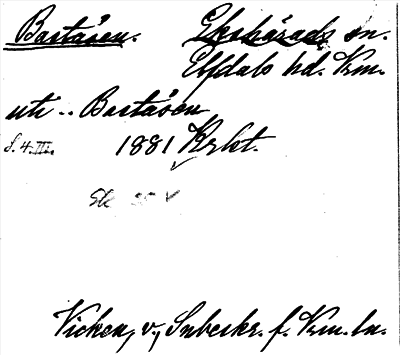 Baståsen. Ekshärads sn.
Elfdals hd. Vrm.
uti .. Baståsen
S. 4. III. 1881 Krkt.
Vicken, v., Inbeskr. f. Vrm. ln.